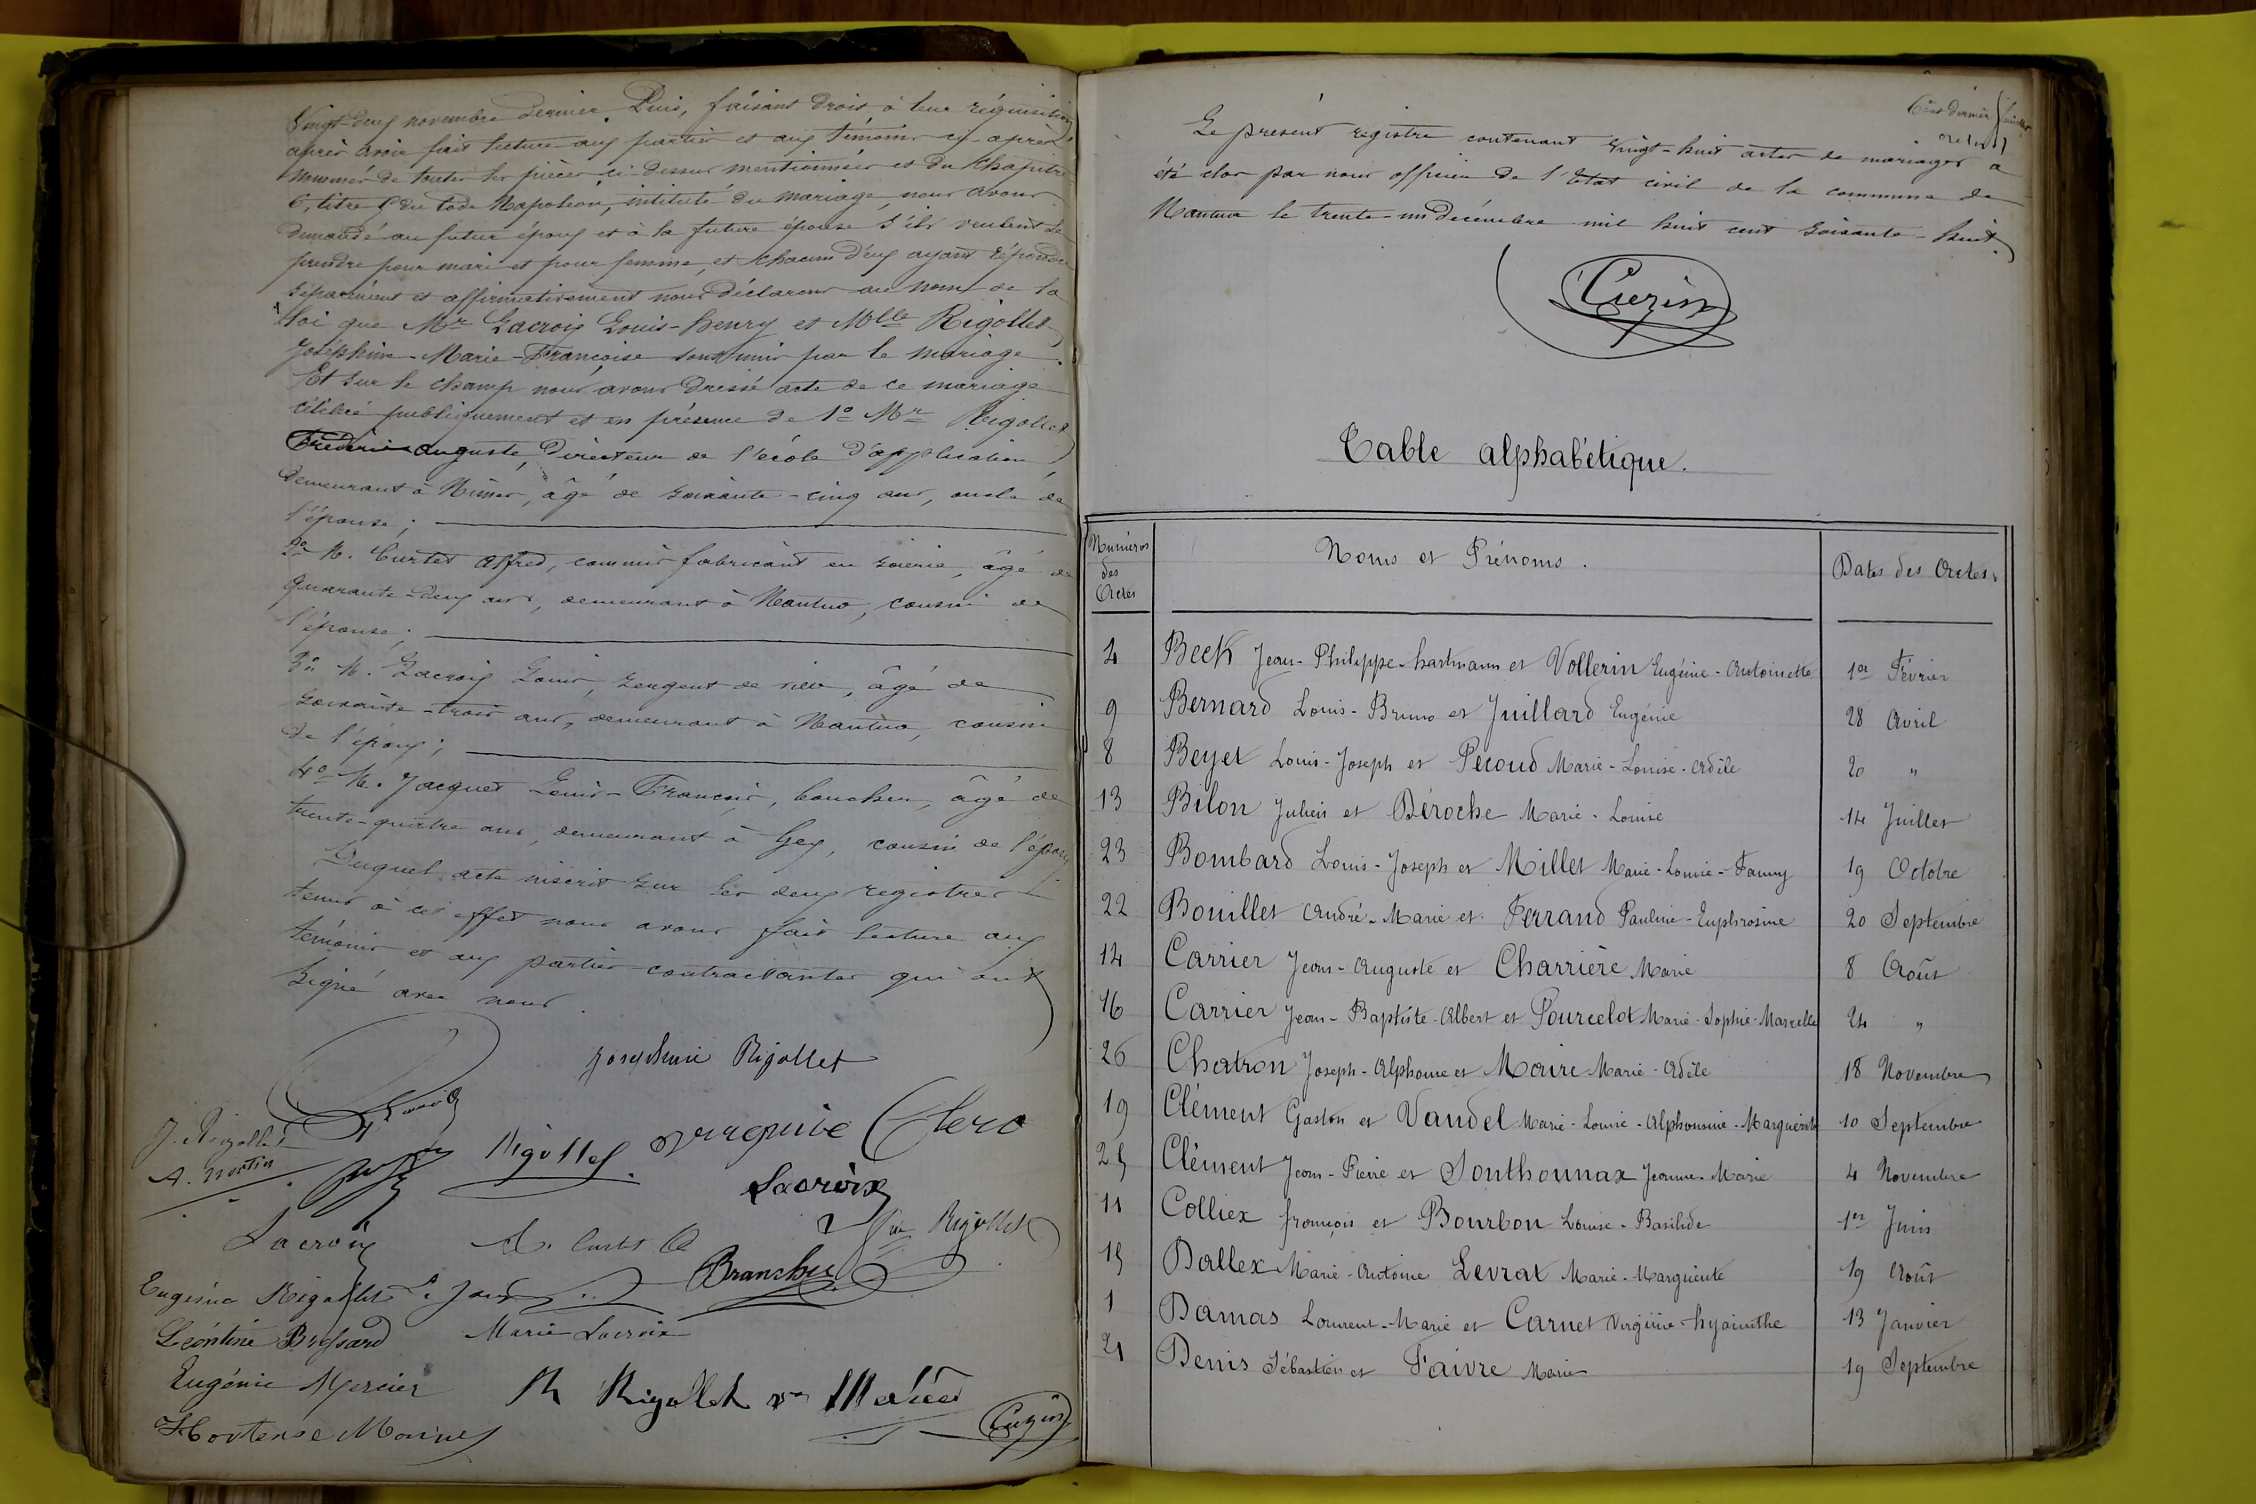 Vingt-deux novembre dernier. Puis, faisant droit à leur réquisition,
après avoir fait lecture aux parties et aux témoins ci-après
nommés de toutes les pièces ci-dessus mentionnées et du chapitre
6, titre 5 du Code Napoléon, intitulé du mariage, nous avons
demandé au futur époux et à la future épouse s'ils veulent se
prendre pour mari et pour femme, et chacun d'eux ayant répondu
séparément et affirmativement nous déclarons au nom de la
loi que Mr Lacroix Louis-henry et Mlle Rigollet
Joséphine-Marie-Françoise sont unis par le mariage.
Et sur le champ nous avons dressé acte de ce mariage
célébré publiquement et en présence de 1º Mr Rigollet
Frédéric Auguste, Directeur de l'école d'application,
demeurant à Nîmes, âgé de soixante-cinq ans, oncle de
l'épouse ;
2º M. Curtet Alfred, commis fabricant en soierie, âgé de
quarante-deux ans, demeurant à Nantua, cousin de
l'épouse ;
3º M. Lacroix Louis, sergent de ville, âgé de
soixante-trois ans, demeurant à Nantua, cousin
de l'époux ;
4º M. Jacquet Louis-François, boucher, âgé de
trente-quatre ans, demeurant à Gex, cousin de l'époux
Duquel acte inscrit sur les deux registres
tenus à cet effet nous avons fait lecture aux
témoins et aux parties contractantes qui ont
signé avec nous.
Joséphine Rigollet
J. Rigollet
Rigollet
Clerc
A. Martin
Lacroix
Lacroix
A. Curtet
Rigollet
Branchu
Eugénie Rigollet
Léontine Brossard
Marie Lacroix
Eugénie Mercier
Rigollet
Hortense
Cuzin
6e et dernier
Le présent registre contenant vingt-huit actes de mariages a
été clos par nous officier de l'Etat civil de la commune de
Nantua le trente-un décembre mil huit cent soixante-huit.
Cuzin
Table alphabétique.
Numéros des Actes
Noms et Prénoms.
Dates des Actes.
4 Beck Jean-Philippe-hartmann et Vollerin Eugénie-Antoinette 1er Février
9 Bernard Louis-Bruno et Juillard Eugénie 28 Avril
8 Beyet Louis-Joseph et Pecoud Marie-Louise-Adèle 20 "
13 Bilon Julien et Déroche Marie-Louise 14 Juillet
23 Bombard Louis-Joseph et Millet Marie-Louise-Fanny 19 Octobre
22 Bouillet André-Marie et Ferrand Pauline-Euphrosine 20 Septembre
14 Carrier Jean-Auguste et Charrière Marie 8 Août
16 Carrier Jean-Baptiste-Albert et Pourcelot Marie-Sophie-Marcelle 24 "
26 Chatron Joseph-Alphonse et Maire Marie-Adèle 18 Novembre
19 Clément Gaston et Vandel Marie-Louise-Alphonsine-Marguerite 10 Septembre
25 Clément Jean-Pierre et Sonthonnax Jeanne-Marie 4 Novembre
11 Colliex françois et Bourbon Louise-Basilide 1er Juin
15 Dallex Marie-Antoine Levrat Marie-Marguerite 19 Août
1 Damas Laurent-Marie et Carnet Virginie-hyacinthe 13 Janvier
21 Denis Sébastien et Faivre Marie 19 Septembre